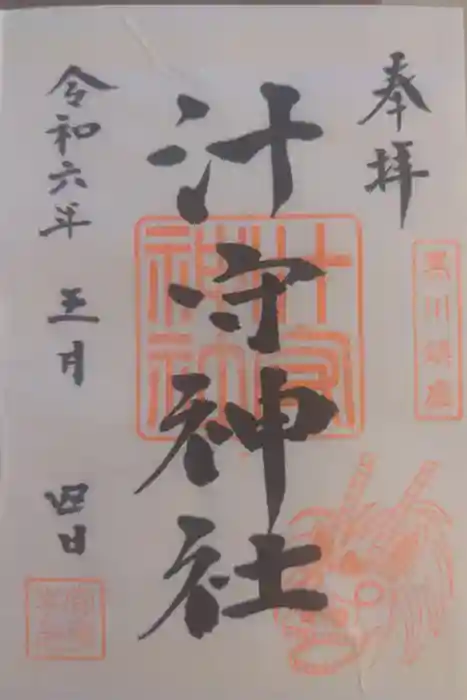 奉拝
黒川鎮座
汁守神社
汁守神社
令和六年 五月 四日